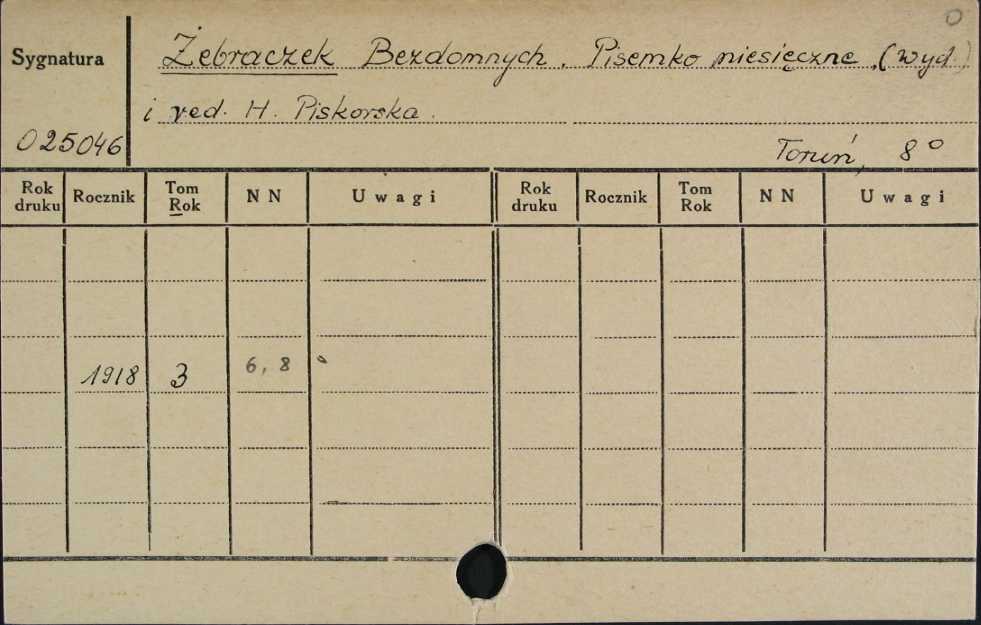 O
Sygnatura
Żebraczek Bezdomnych. Pisemko miesięczne. (wyd.)
i red. H. Piskorska.
025046
Toruń, 8°
Rok druku Rocznik Tom Rok NN Uwagi Rok druku Rocznik Tom Rok NN Uwagi
1918 3 6, 8